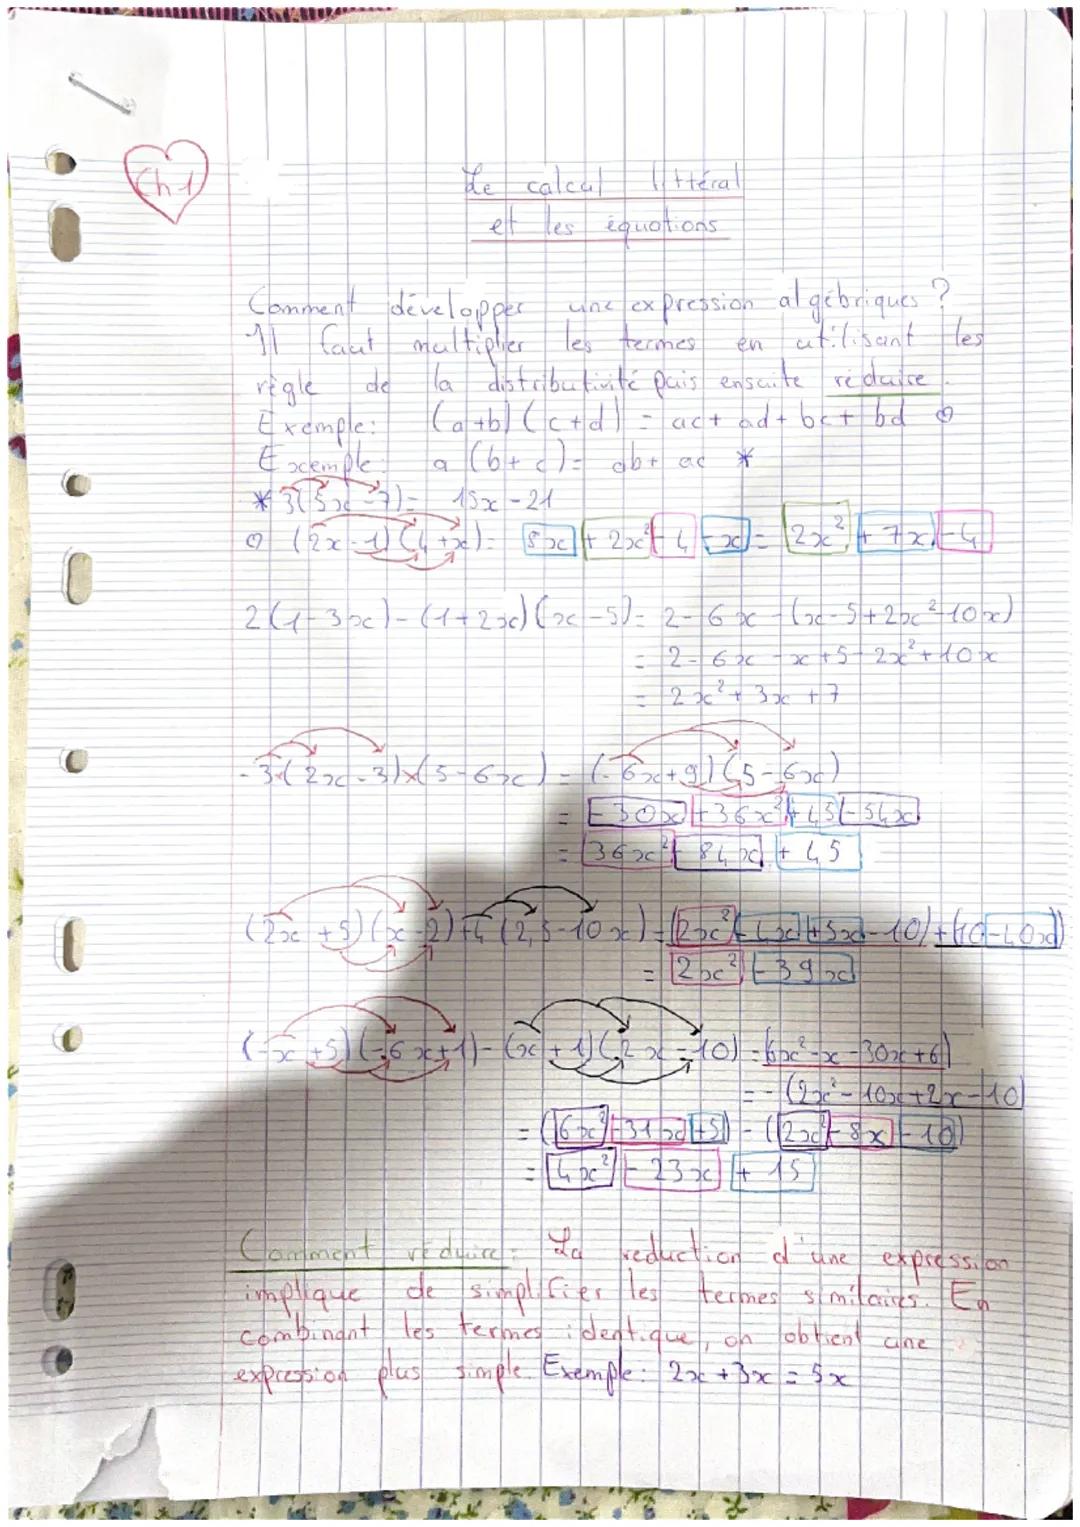 Ch 1
Le calcul littéral
et les équations
Comment développer une expression algébriques ?
Il faut multiplier les termes en utilisant les
règle de la distributivité puis ensuite réduire.
Exemple: (a+b) (c+d) = ac + ad + bc + bd
Excemple: a (b+c) = ab + ac *
* 3(5x-7) = 15x - 21
(2x-1)(4+x) = 8x + 2x² - 4 - x = 2x² + 7x - 4
2(1-3x) - (1+2x)(x-5) = 2-6x - (x-5+2x²-10x)
= 2-6x-x+5-2x²+10x
= 2x² + 3x + 7
-3×(2x-3)×(5-6x) = (-6x+9)(5-6x)
= -30x + 36x² + 45 - 54x
= 36x² - 84x + 45
(2x+5)(x-2)+4(2,5-10x) = (2x²-4x+5x-10)+(10-40x)
= 2x² - 39x
(-x+5)(-6x+1)-(x+1)(2x-10) = 6x²-x-30x+6)
= -(2x²-10x+2x-10)
= (6x²-31x+5) - (2x²-8x-10)
= 4x² - 23x + 15
Comment réduire: La reduction d'une expression
implique de simplifier les termes similaires. En
combinant les termes identique, on obtient une
expression plus simple. Exemple: 2x+3x = 5x